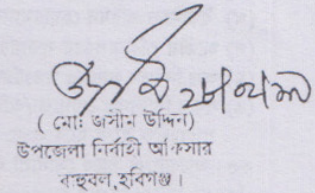 ( মোঃ জসীম উদ্দিন)
উপজেলা নির্বাহী অফিসার
বাহুবল,হবিগঞ্জ।